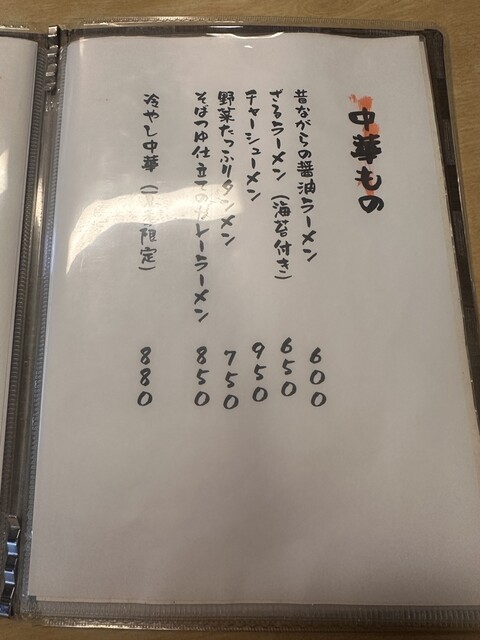 中華もの
昔ながらの醤油ラーメン 600
ざるラーメン（海苔付き） 650
チャーシューメン 950
野菜たっぷりタンメン 750
そばつゆ仕立てのカレーラーメン 850
冷やし中華（夏季限定） 880